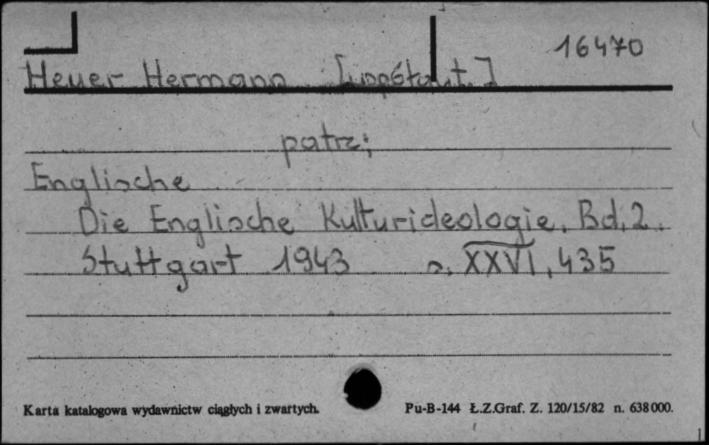 16470
Heuer Hermann [współaut.]
patrz:
Englische
Die Englische Kulturideologie. Bd. 2.
Stuttgart 1943 s. XXVI, 435
Karta katalogowa wydawnictw ciągłych i zwartych.
Pu-B-144 Ł.Z.Graf. Z. 120/15/82 n. 638000.